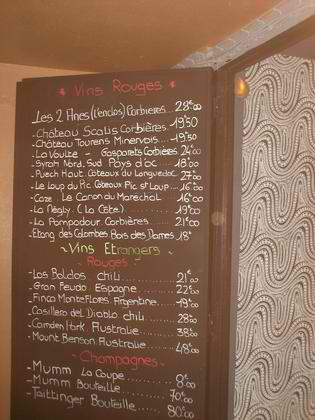 * Vins Rouges *
Les 2 Anes (l'enclos) Corbieres...28€00
-Château Scalis Corbières...19'50
-Château Tourens Minervois...19'50
-La Voulte - Gasparets Corbières 24€00
-Syrah Nord.Sud Pays d'oc...18€00
-Puech Haut Côteaux du Languedoc 27€00
-Le Loup du Pic Côteaux Pic St Loup...16€00
-Caze Le Canon du Maréchal...16€00
-La Négly (La Côte)...19€00
-La Pompadour Corbières...21€00
-Etang des Colombes Bois des Dames 18€
~Vins Etrangers~
-Rouges-
-Los Boldos chili...21€00
-Gran Feudo Espagne...22€00
-Finca Monteflores Argentine...19€00
-Casillero del Diablo chili...28€00
-Camden Park Australie...38€00
-Mount Benson Australie...48€00
-Champagnes-
-Mumm La Coupe...8€00
-Mumm Bouteille...70€00
-Taittinger Bouteille...80€00